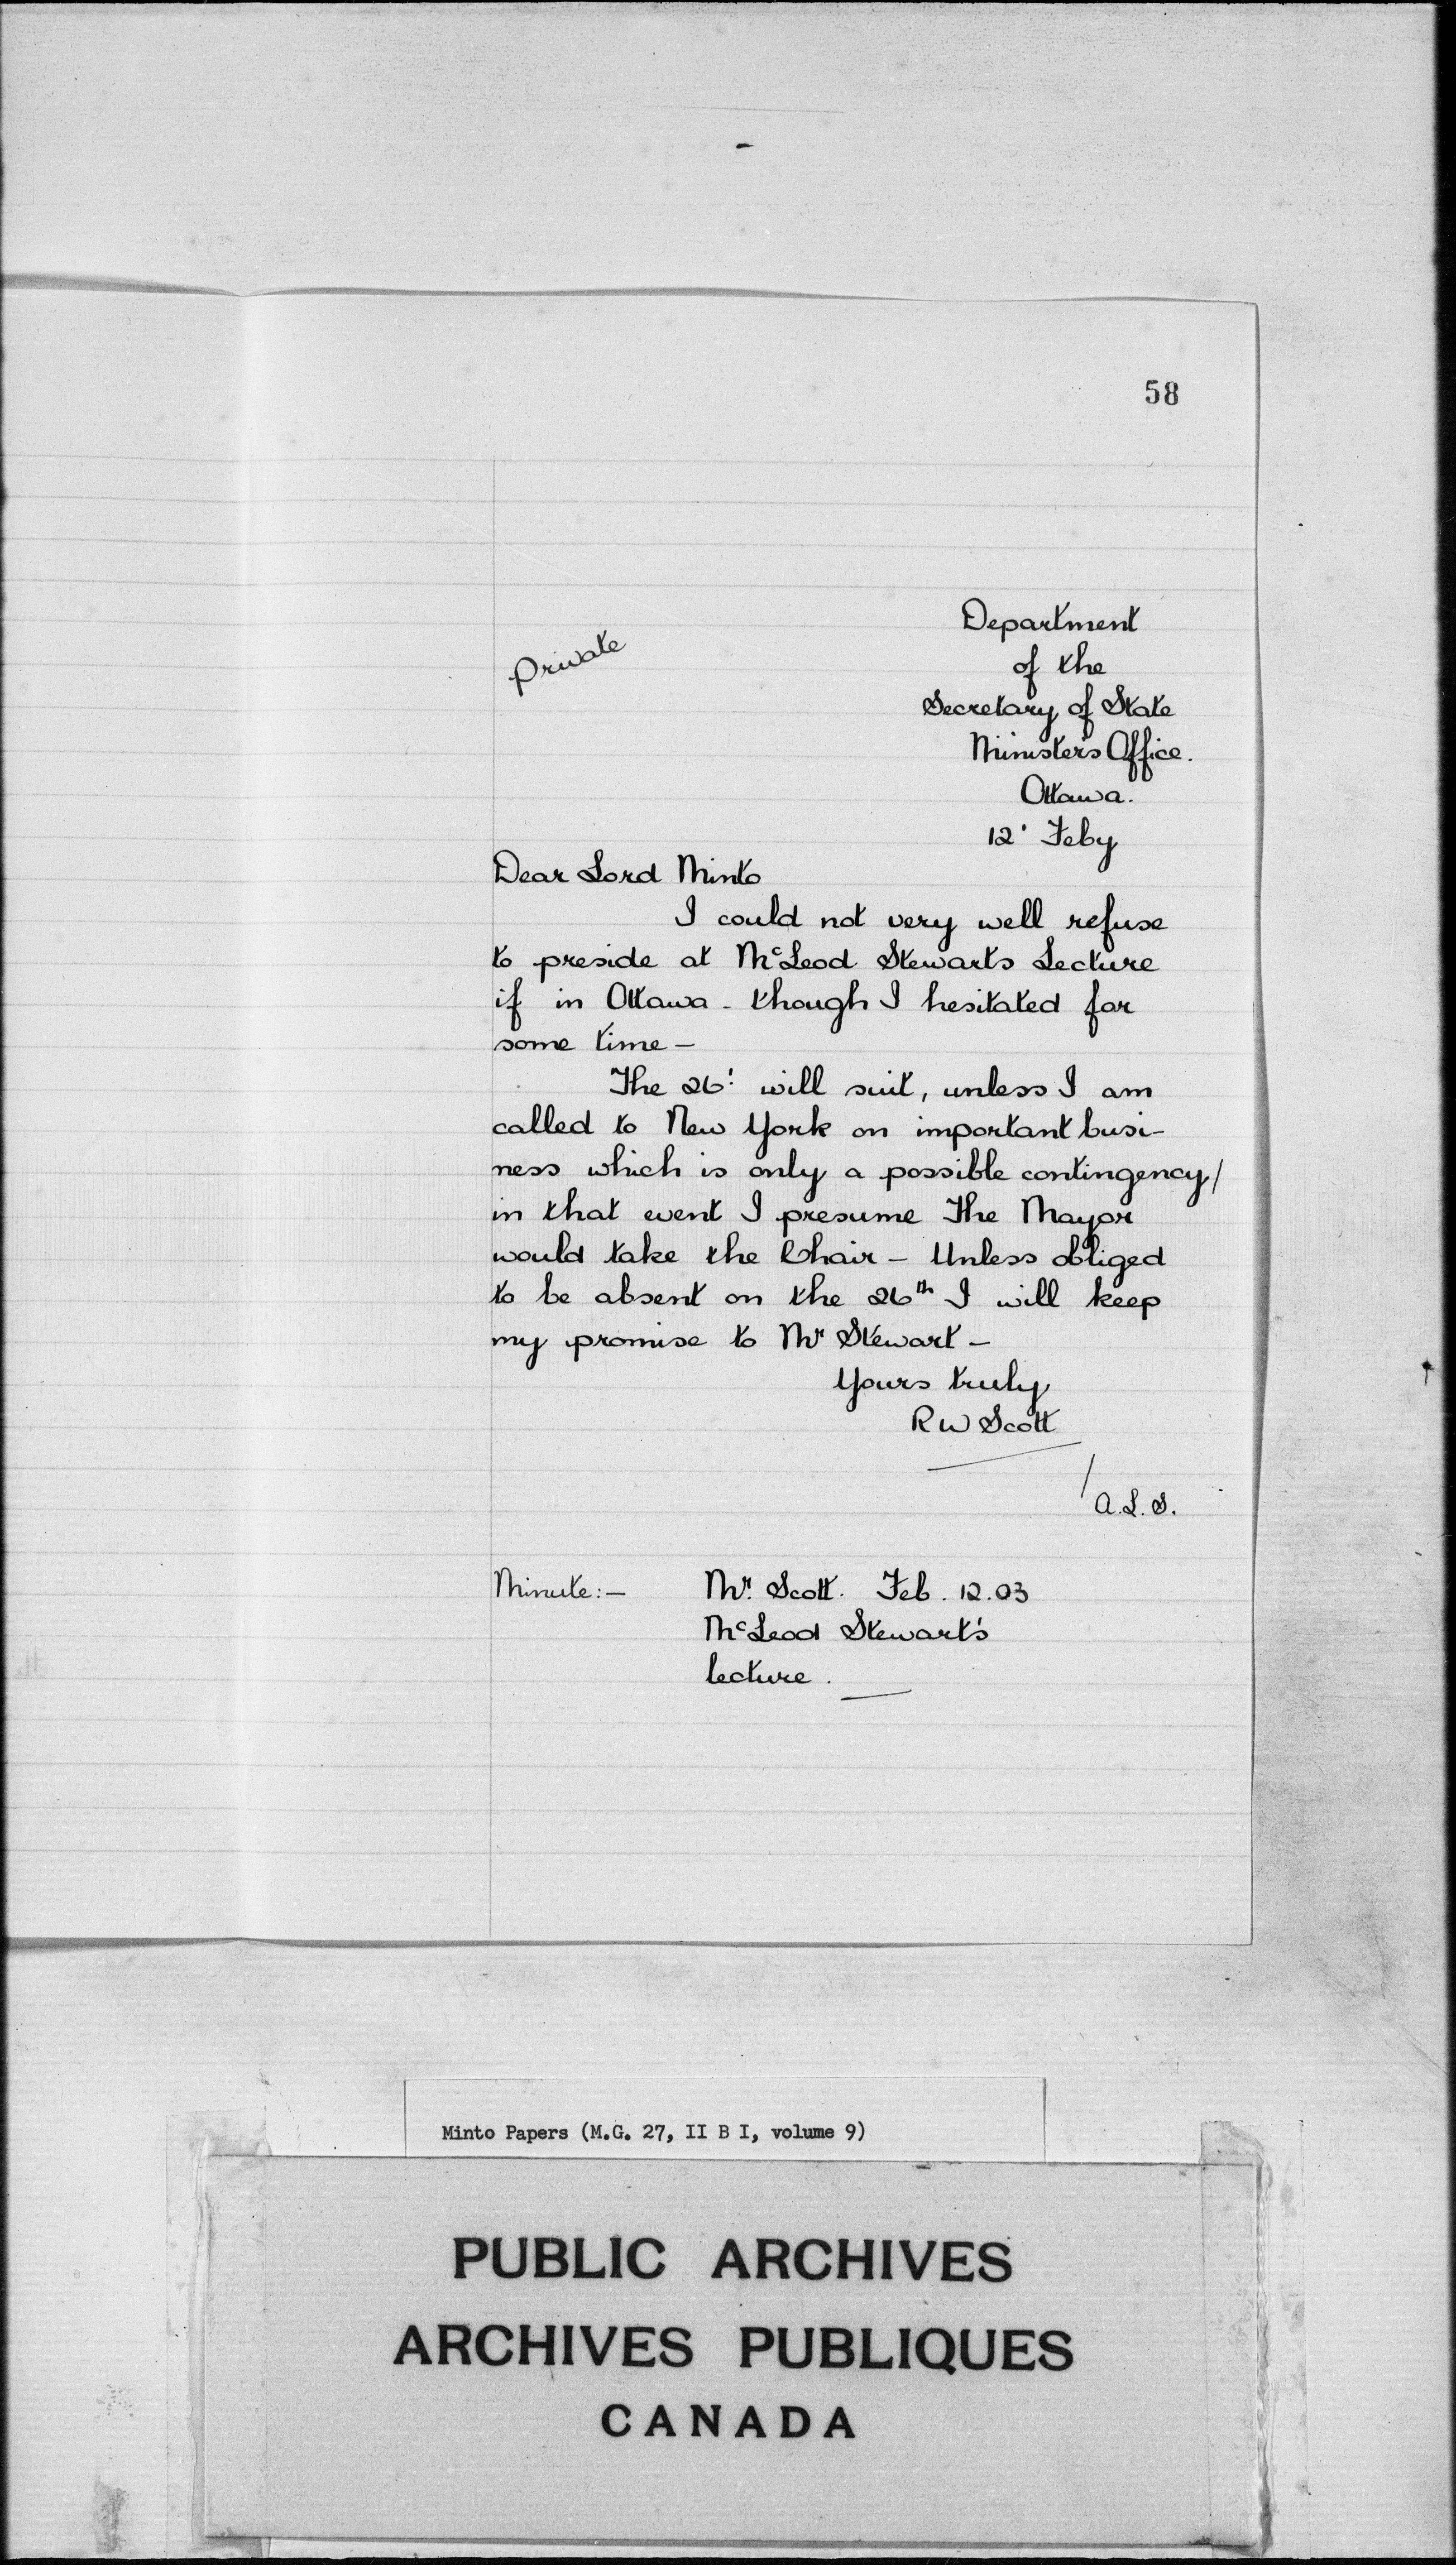 58
Private
Department
of the
Secretary of State
Minister's Office.
Ottawa.
12' Feby
Dear Lord Minto
I could not very well refuse
to preside at McLeod Stewarts Lecture
if in Ottawa - though I hesitated for
some time —
The 26! will suit, unless I am
called to New York on important busi-
ness which is only a possible contingency/
in that event I presume The Mayor
would take the Chair — Unless obliged
to be absent on the 26th I will keep
my promise to Mr Stewart —
Yours truly
R W Scott
A.L.S.
Minute:— Mr. Scott. Feb. 12.03
McLeod Stewart's
lecture.
Minto Papers (M.G. 27, II B I, volume 9)
PUBLIC ARCHIVES
ARCHIVES PUBLIQUES
CANADA